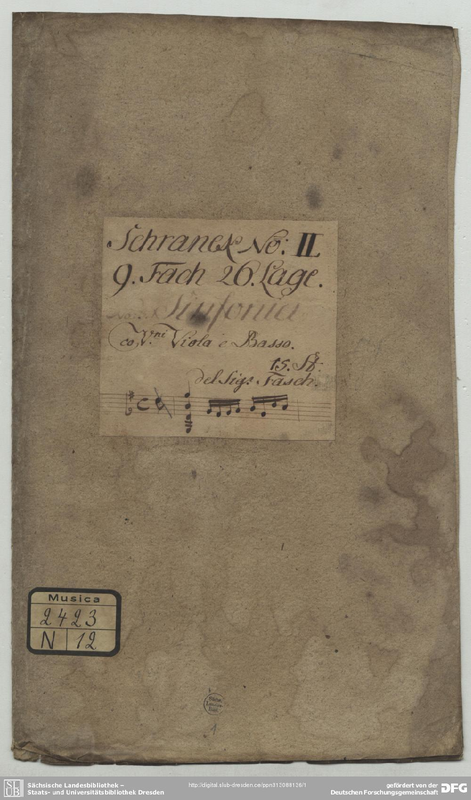 Schranck No: II.
9. Fach 26. Lage.
Sinfonia
co V.ni Viola e Basso.
15. St:
del Sigr Fasch.
Musica
2423
N 12
1
Sächsische Landesbibliothek –
Staats- und Universitätsbibliothek Dresden
gefördert von der
Deutschen Forschungsgemeinschaft
DFG